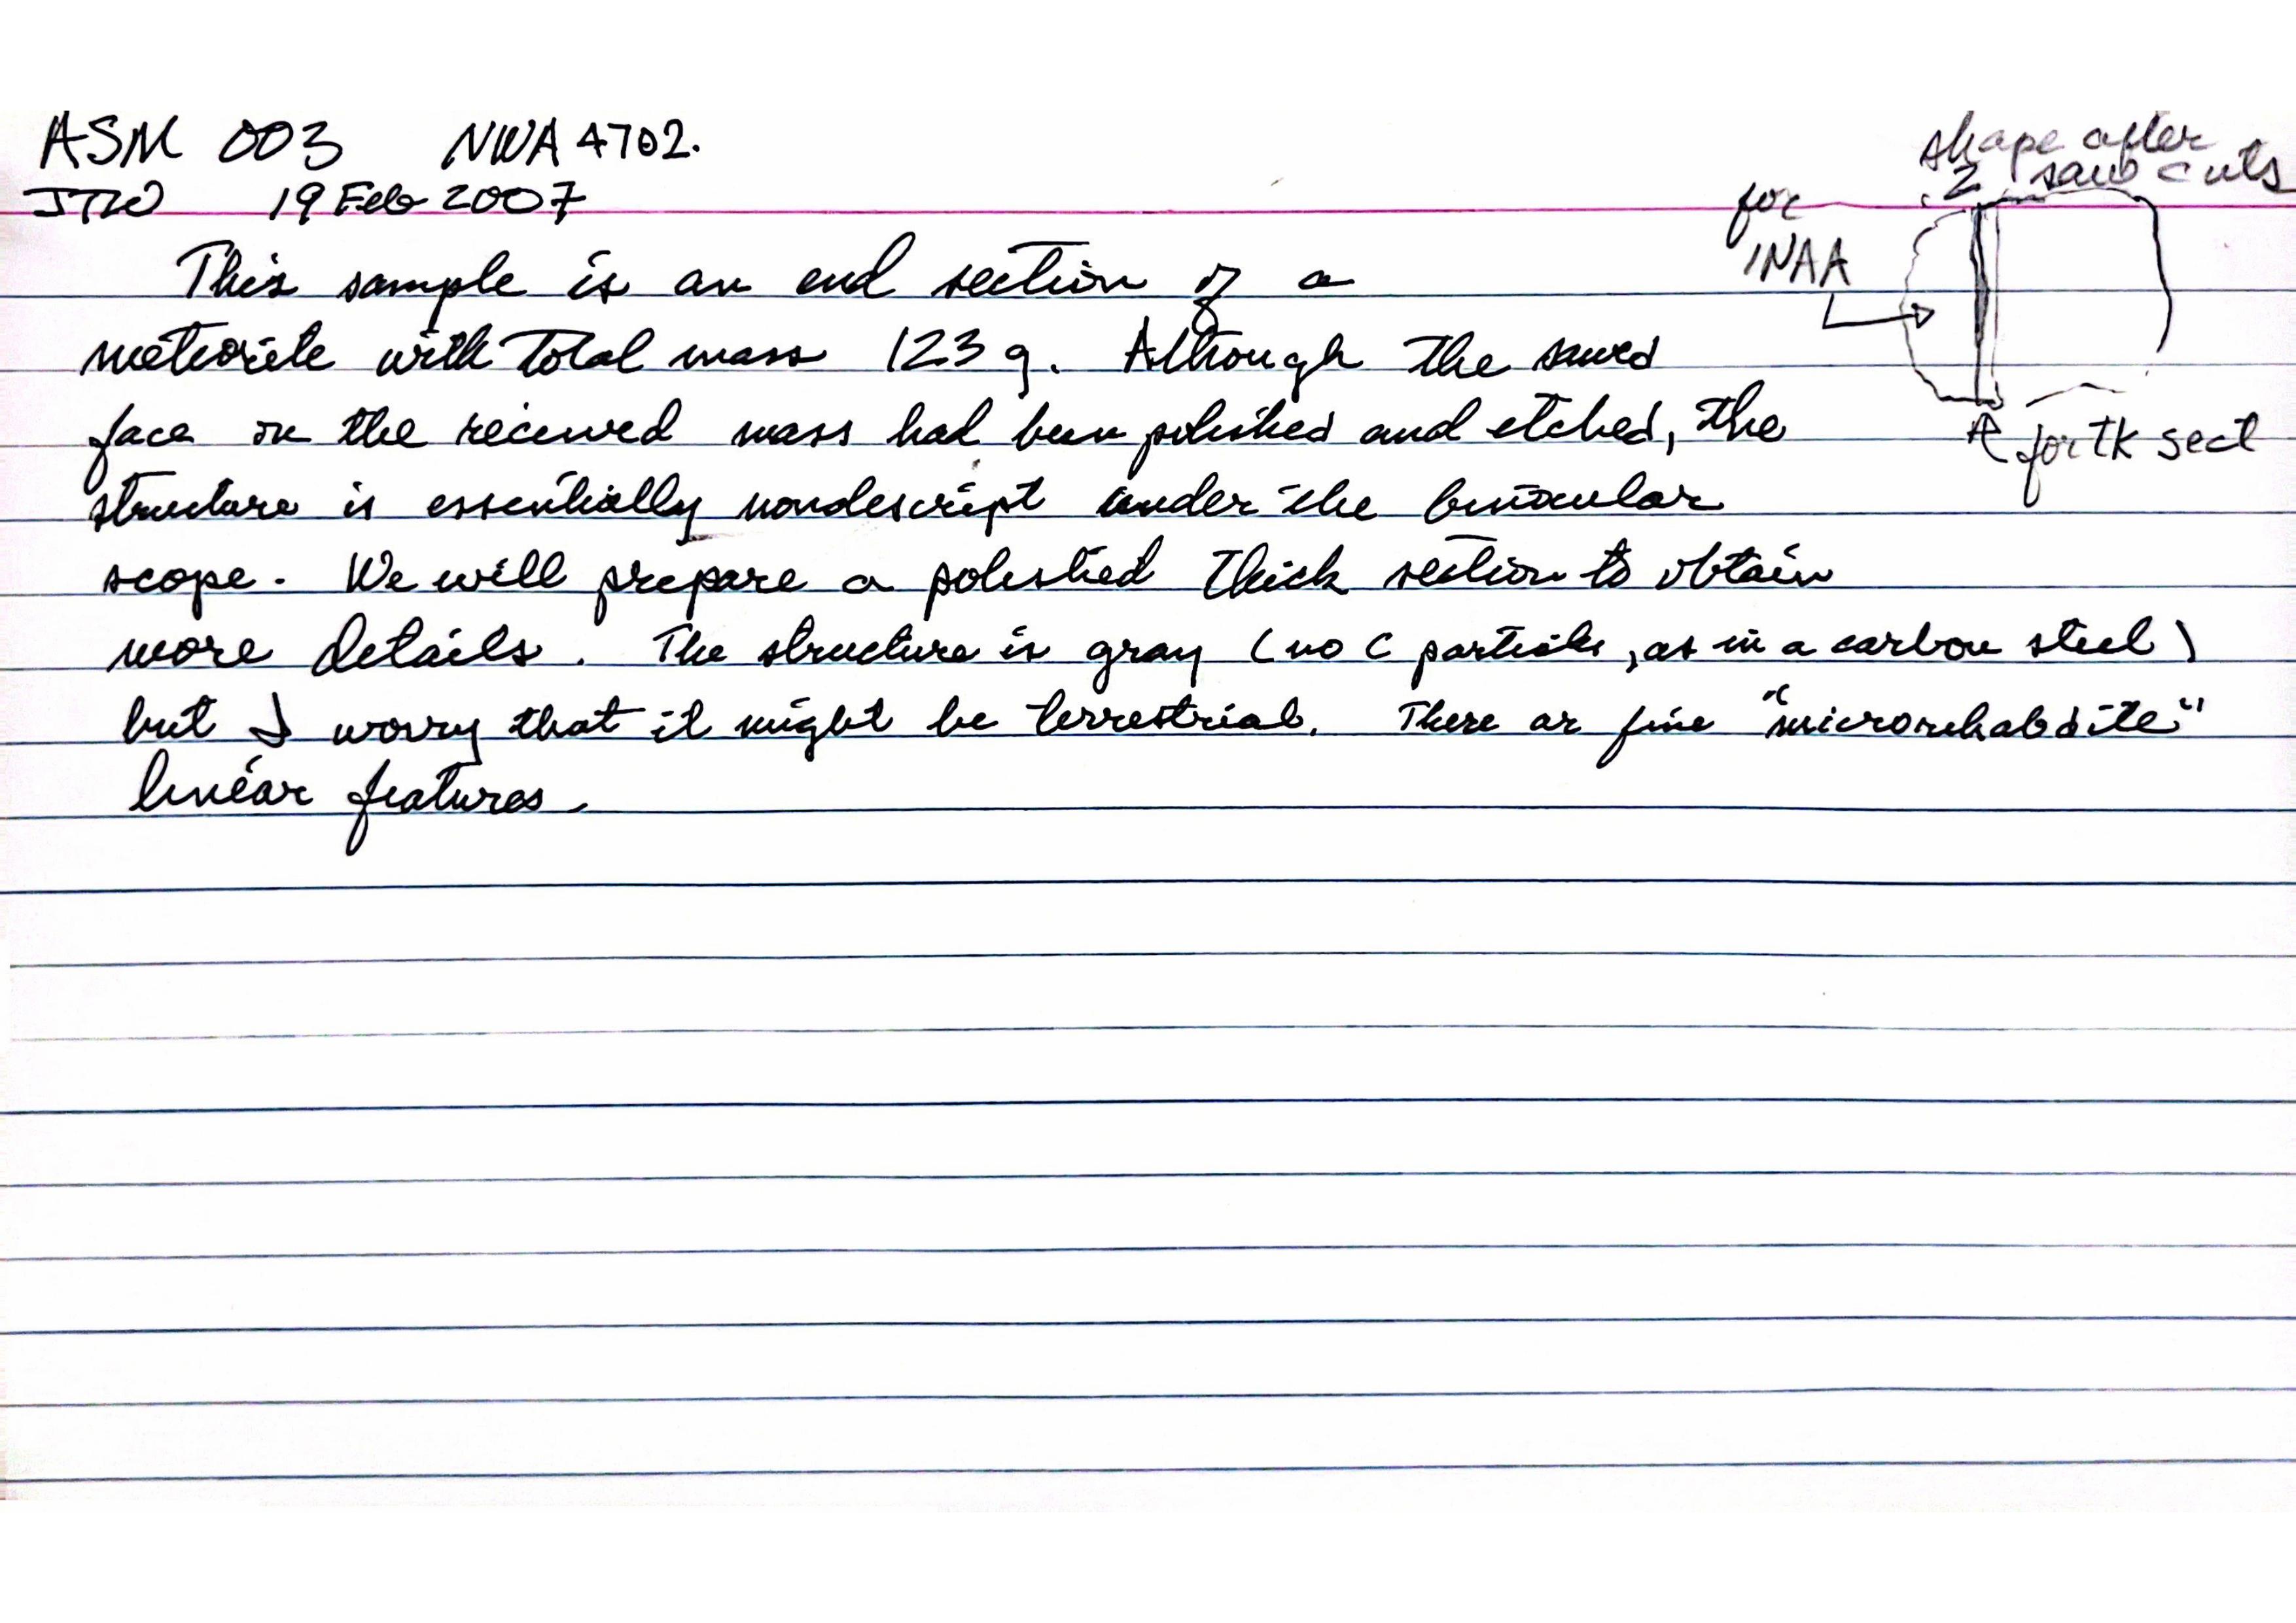 ASM 003 NWA 4702.
JTW 19 Feb 2007
shape after
2 saw cuts
for
INAA
for TK sect
This sample is an end section of a
meteorite with total mass 123 g. Although the sawed
face on the received mass had been polished and etched, the
structure is essentially nondescript under the binocular
scope. We will prepare a polished thick section to obtain
more details. The structure is gray (no C particles, as in a carbon steel)
but I worry that it might be terrestrial. There ar fine "microrehabdite"
linear features.